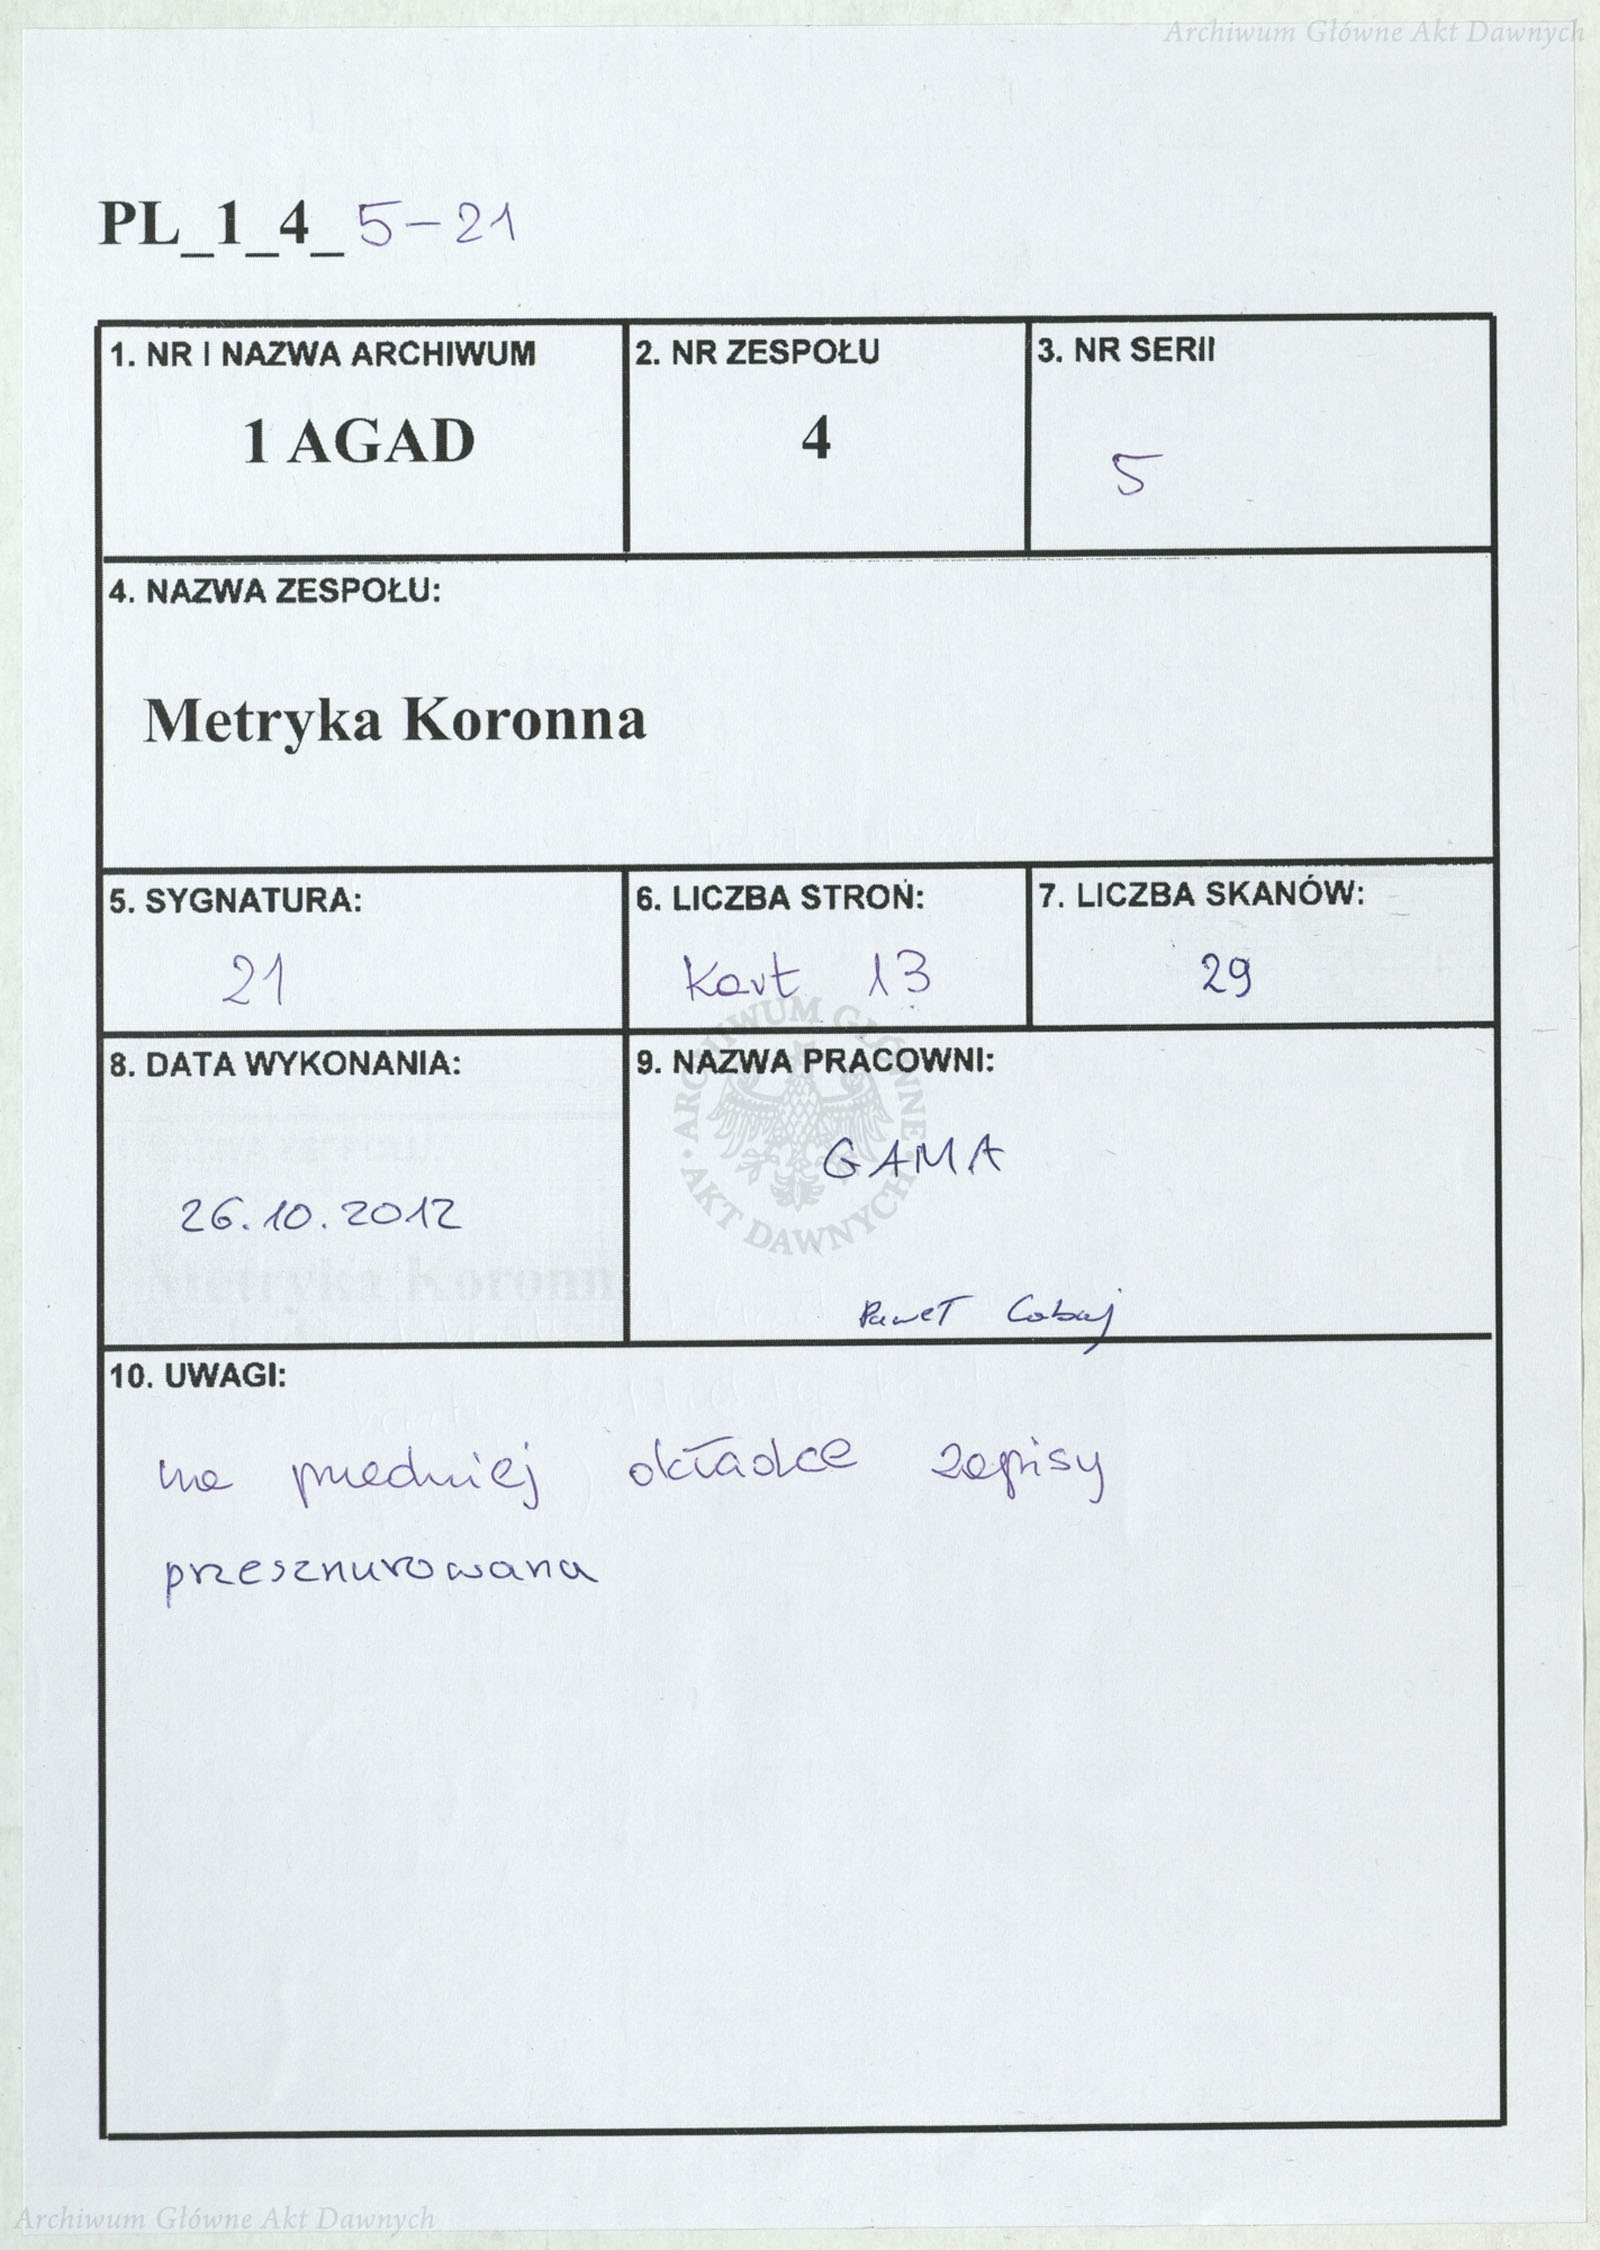 Archiwum Główne Akt Dawnych
PL_1_4_ 5-21
1. NR I NAZWA ARCHIWUM
1 AGAD
2. NR ZESPOŁU
4
3. NR SERII
5
4. NAZWA ZESPOŁU:
Metryka Koronna
5. SYGNATURA:
21
6. LICZBA STRON:
Kart 13
7. LICZBA SKANÓW:
29
8. DATA WYKONANIA:
26.10.2012
9. NAZWA PRACOWNI:
GAMA
Paweł
ARCHIWUM GŁÓWNE AKT DAWNYCH
10. UWAGI:
na przedniej okładce zapisy
przesznurowana
Metryka Koronn
Archiwum Główne Akt Dawnych